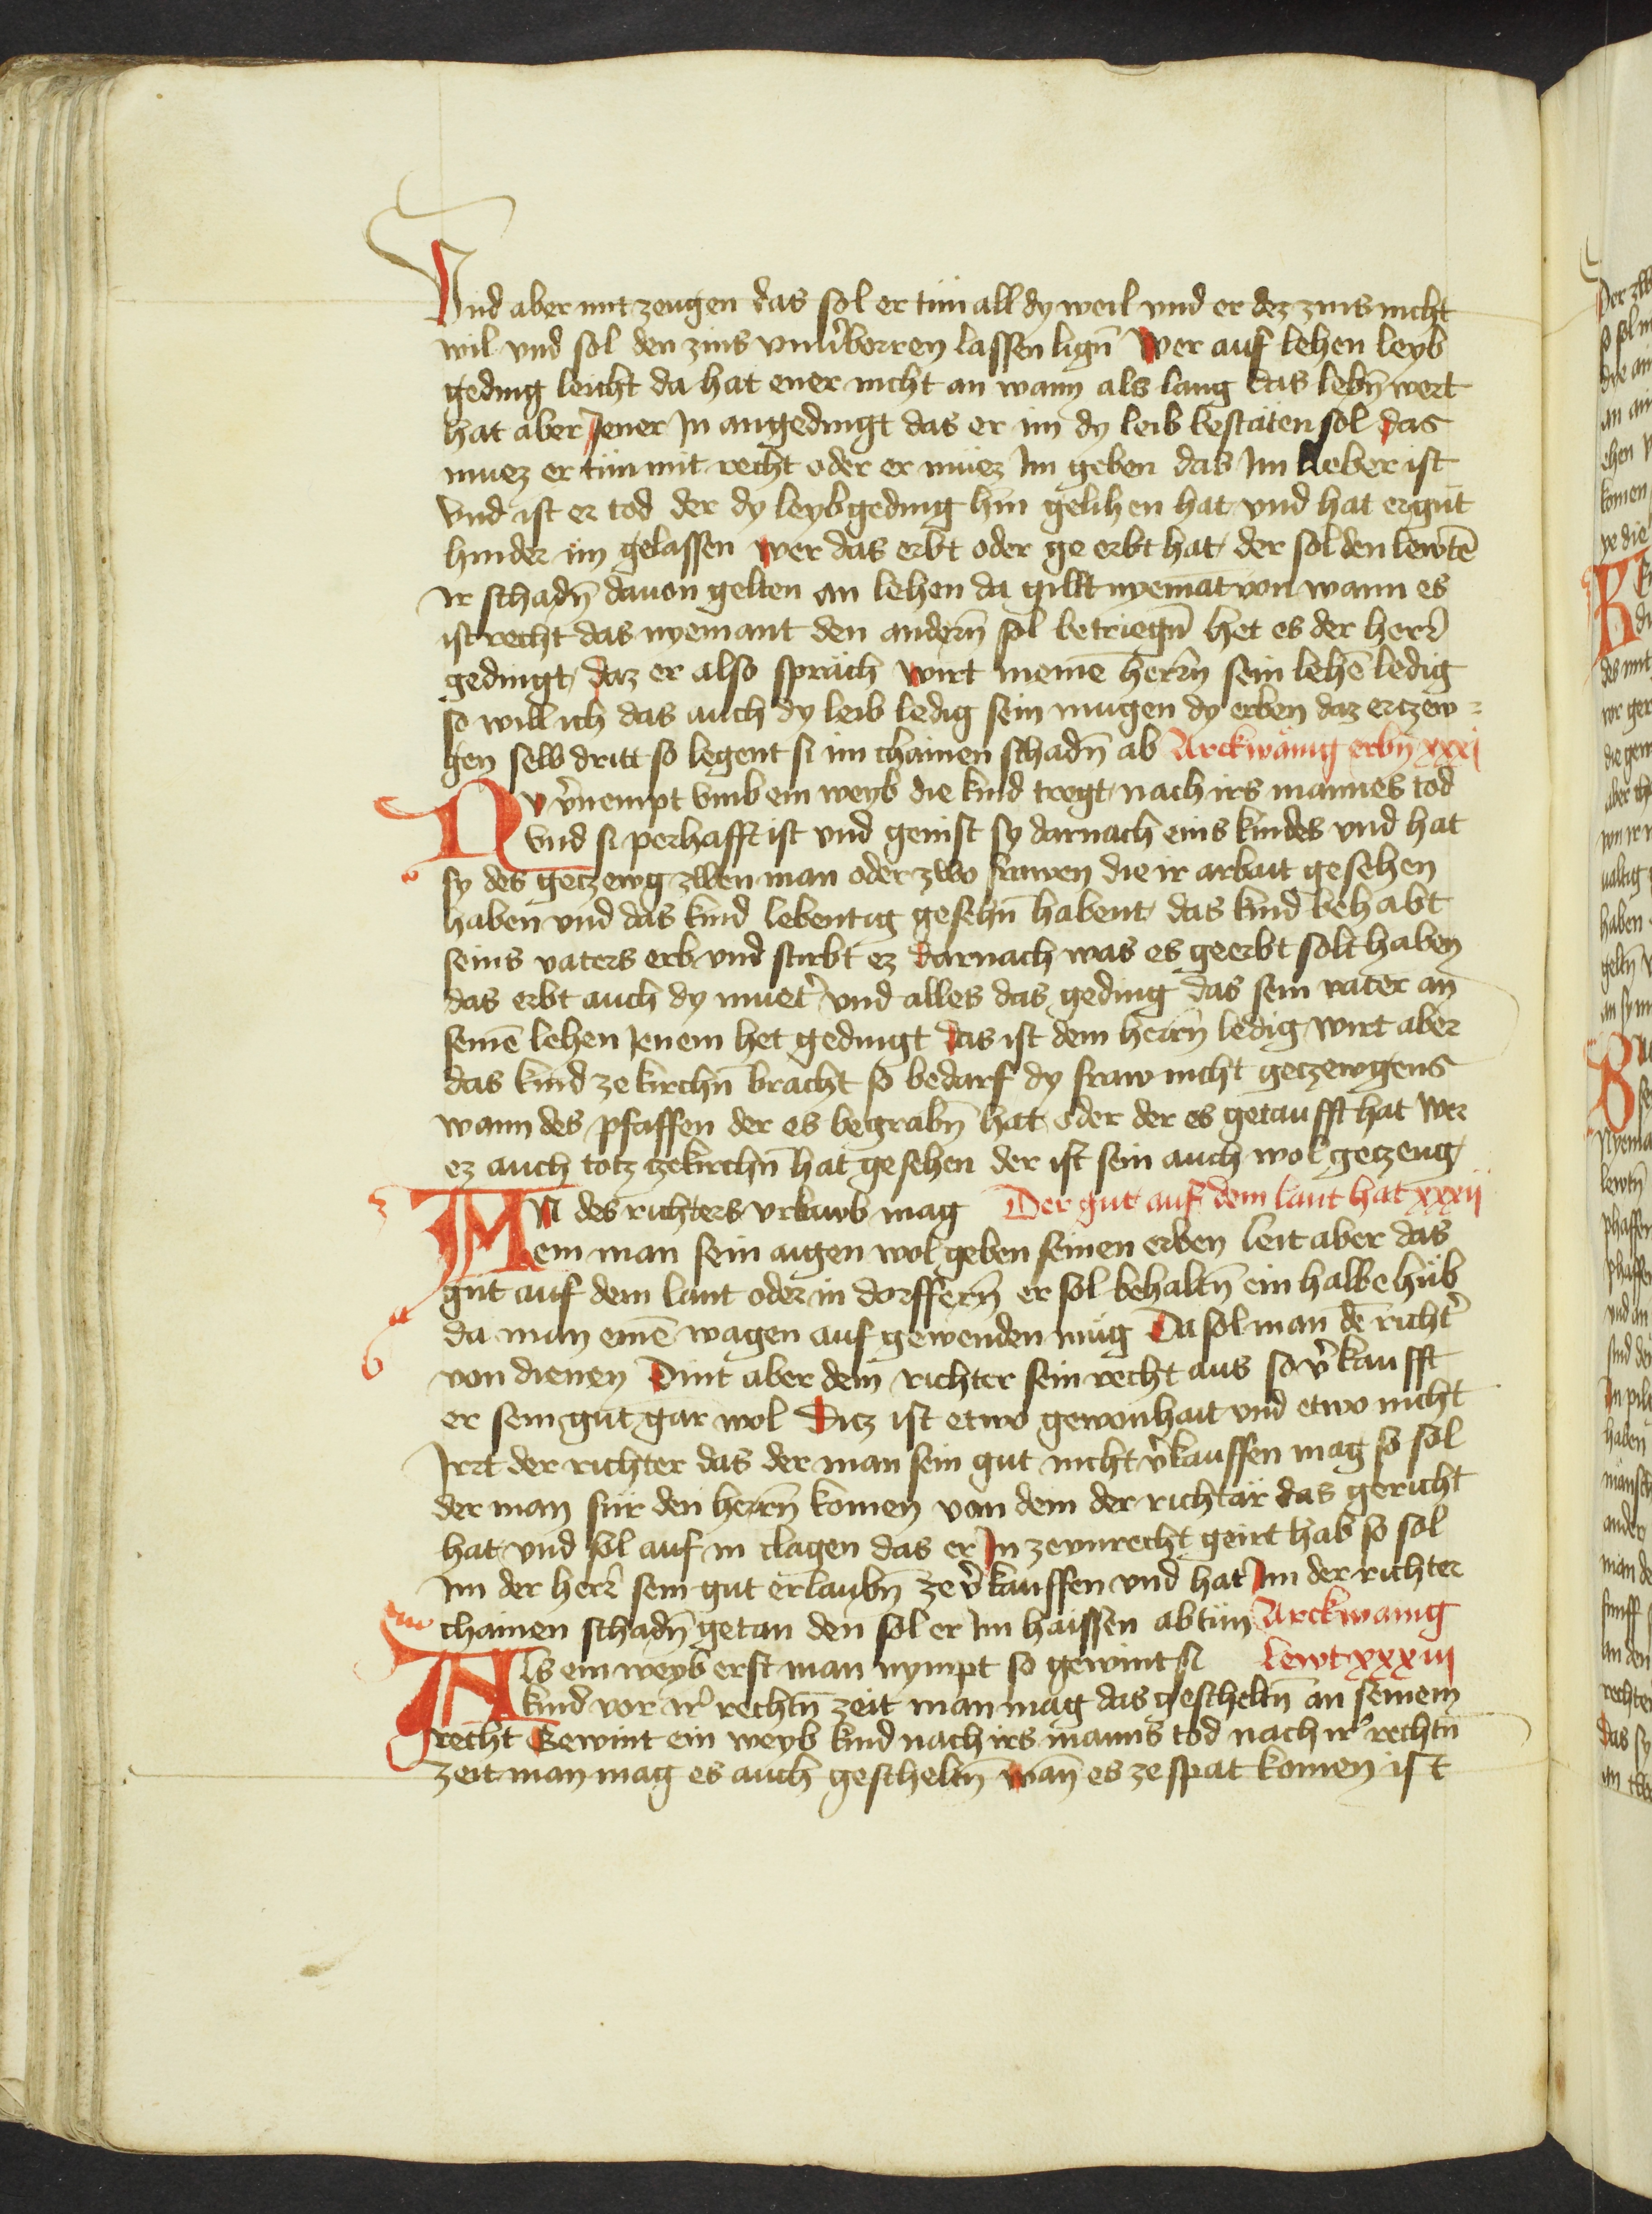 Vnd aber mit zeugen das sol er tün all dy weil vnd er dez zins nicht
wil vnd sol den zins vnuͤborren lassen lign̄ Wer auf lehen leyb
geding leicht da hat ener nicht an wann als lang das lebn̄ wert
hat aber Jener Jn angedingt das er im dy leib bestäten sol das
muez er tün mit recht oder er müez Jm geben das Jm lieber ist
Vnd ist er tod der dy leybgeding hin gelihen hat vnd hat er gut
hinder im gelassen wer das erbt oder ge erbt hat der sol den lewtē
Jr schadn̄ dauon gelten an lehen da gillt nyemāt von wann es
ist recht das nyemant den andern̄ sol betriegn̄ het es der herr̄
gedingt daz er also spräch wirt meinē herrn̄ sein lehē ledig
so will ich das auch dy leib ledig sein mugen dy erben daz erczew=
gen selb dritt so legent si im chainen schadn̄ ab Arckwänig erbn̄ xxxj
NV v̄nempt vmb ein weyb die kind tregt nach irs mannes tod
Vnd si perhafft ist vnd genist sy darnach eins kindes vnd hat
sy des geczewg zwen man oder zwo frawen die ir arbait gesehen
haben vnd das kind lebentig gesehn̄ habent das kind behabt
seins vaters erb vnd stirbt ez darnach was es geerbt solt haben
das erbt auch dy muet̄ vnd alles das geding das sein vater an
seinē lehen Jenem het gedingt das ist dem herrn̄ ledig wirt aber
das kind ze kirchn̄ bracht so bedarf dy fraw nicht geczewgens
wann des pfaffen der es begrabn̄ hat oder der es getaufft hat Wer
ez auch totz ze kirchn̄ hat gesehen der ist sein auch wol geczeug
AN des richters vrlawb mag Der gut auf dem lant hat xxxij
ein man sein aigen wol geben seinen erben leit aber das
gut auf dem lant oder in dorffern̄ er sol behaltn̄ ein halbe hüb
da man einē wagen auf gewenden müg Da sol man dē richt̄
von dienen Dint aber dem richter sein recht aus so v̄kaufft
er sein gut gar wol Ditz ist etwo gewonhait vnd etwo nicht
Jrrt der richter das der man sein gut nicht v̄kauffen mag so sol
der man für den herrn̄ komen von dem der richtär das gericht
hat vnd sol auf in clagen das er Jn ze vnrecht geirt hab so sol
Jm der herr̄ sein gut erlaubn̄ ze v̄kauffen vnd hat Jm der richter
chainen schadn̄ getan den sol er Jm haissen abtün Arckwanig
ALs ein weyb erst man nympt so gewint si lewt xxxiij
kind vor ir̄ rechtn̄ zeit man mag das gescheltn̄ an seinem
recht Gewint ein weyb kind nach irs manns tod nach ir̄ rechtn̄
zeit man mag es auch gescheltn̄ wan̄ es ze spat komen ist